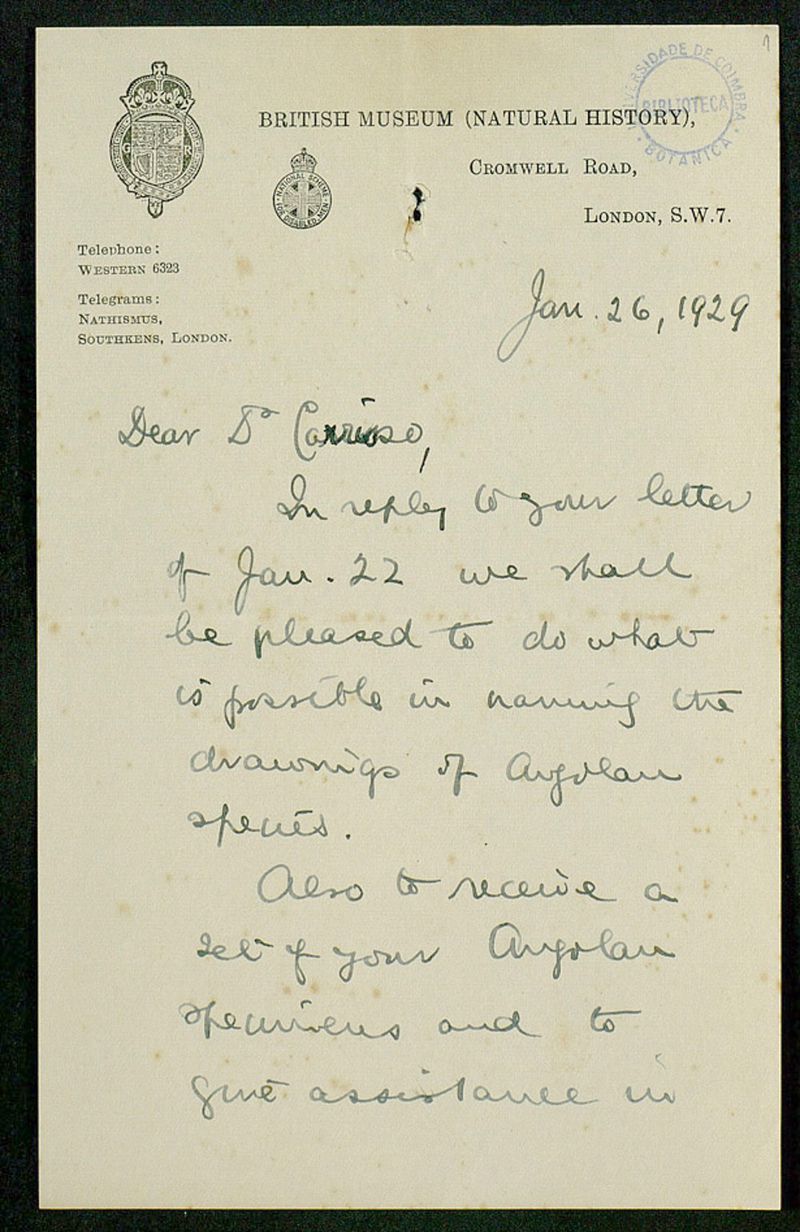 1
UNIVERSIDADE DE COIMBRA
BIBLIOTECA
BOTANICA
BRITISH MUSEUM (NATURAL HISTORY),
CROMWELL ROAD,
LONDON, S.W.7.
G R
NATIONAL SCHEME
FOR DISABLED MEN
Telephone:
WESTERN 6323
Telegrams:
NATHISMUS,
SOUTHKENS, LONDON.
Jan. 26, 1929
Dear Dr Carrisso,
In reply to your letter
of Jan. 22 we shall
be pleased to do what
is possible in naming the
drawings of Angolan
species.
Also to receive a
set of your Angolan
specimens and to
give assistance in